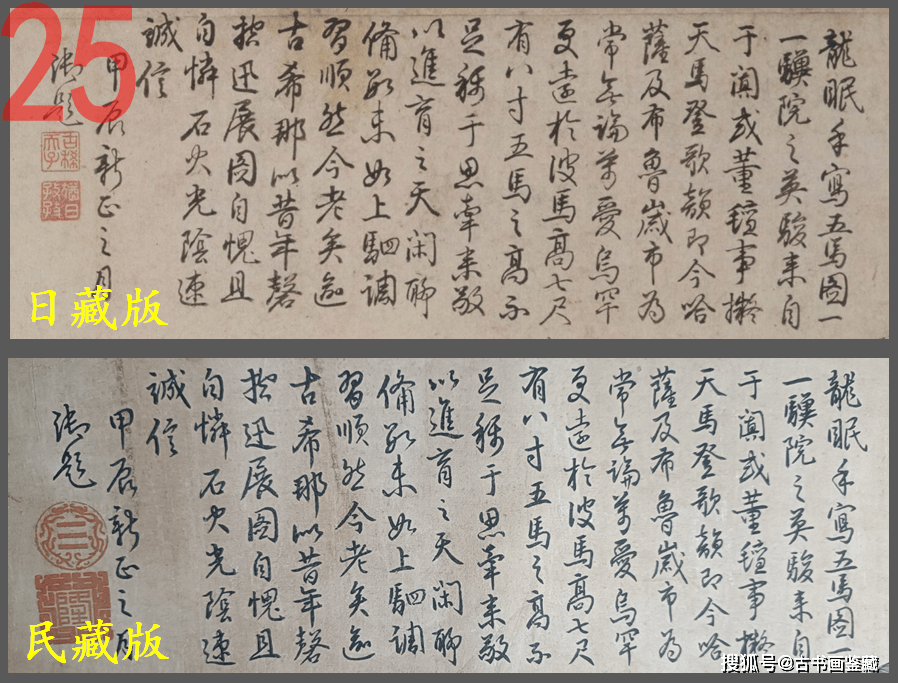 25
龍眠手寫五馬圖一
一驥院之英駿来自
于闐或董氊事擬
天馬登歌韻即今哈
薩及布魯歲市為
常無論萬愛烏罕
更遠於波馬高七尺
有八寸五馬之高不
足稱于思牽来敬
以進育之天閑聊
備數未如上駟調
習順然今老矣逾
古希那以昔年磬
控迅展圖自愧且
自憐石火光陰速
誠信
甲辰新正之月
御題
古稀天子
猶日孜孜
日藏版
龍眠手寫五馬圖一
一驥院之英駿来自
于闐或董氊事擬
天馬登歌韻即今哈
薩及布魯歲市為
常無論萬愛烏罕
更遠於波馬高七尺
有八寸五馬之高不
足稱于思牽来敬
以進育之天閑聊
備數未如上駟調
習順然今老矣逾
古希那以昔年磬
控迅展圖自愧且
自憐石火光陰速
誠信
甲辰新正之月
御題
民藏版
搜狐号@古书画鉴藏